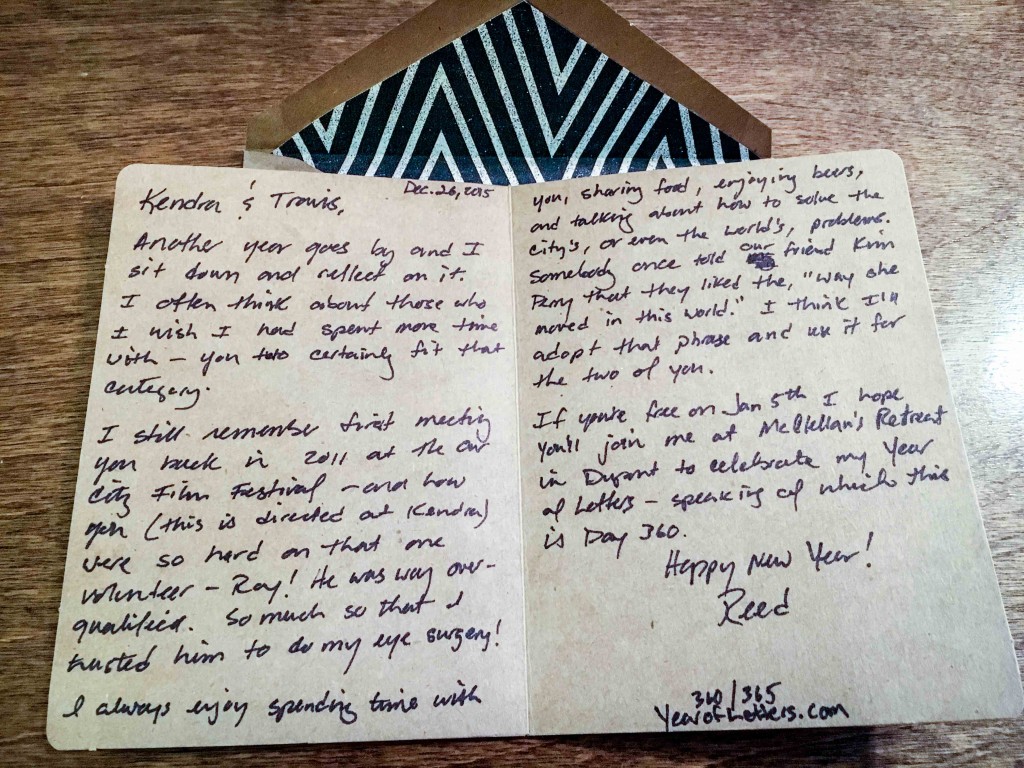 Dec. 26, 2015
Kendra & Travis,
Another year goes by and I
sit down and reflect on it.
I often think about those who
I wish I had spent more time
with – you two certainly fit that
category.
I still remember first meeting
you back in 2011 at the Our
City Film Festival – and how
you (this is directed at Kendra)
were so hard on that one
volunteer – Ray! He was way over-
qualified. So much so that I
trusted him to do my eye surgery!
I always enjoy spending time with
you, sharing food, enjoying beers,
and talking about how to solve the
city's, or even the world's, problems.
Somebody once told our friend
Perry that they liked the, "way she
moved in this world." I think I'll
adopt that phrase and use it for
the two of you.
If you're free on Jan 5th I hope
you'll join me at McClellan's Retreat
in Dupont to celebrate my Year
of Letters – speaking of which this
is Day 360.
Happy New Year!
Reed
360/365
YearofLetters.com